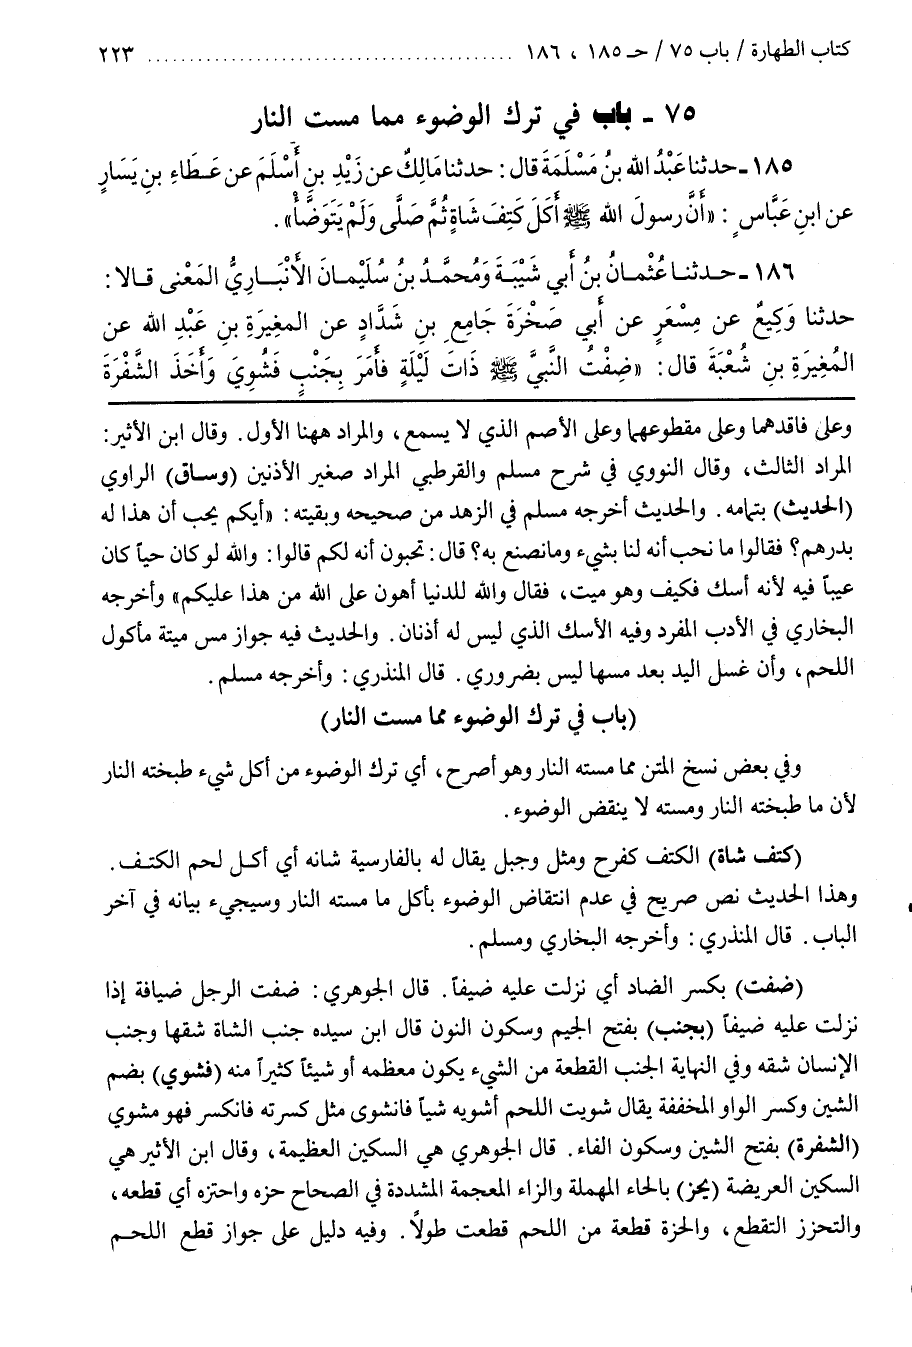 كتاب الطهارة / باب ٧٥ / حـ ١٨٥ ، ١٨٦ ........................................... ٢٢٣
٧٥ - باب في ترك الوضوء مما مست النار
١٨٥ - حدثنا عَبْدُ الله بنُ مَسْلَمَةَ قال: حدثنا مَالِكٌ عن زَيْدِ بنِ أَسْلَمَ عن عَطَاءِ بنِ يَسَارٍ
عن ابنِ عَبَّاسٍ: «أَنَّ رسولَ الله ﷺ أَكَلَ كَتِفَ شَاةٍ ثُمَّ صَلَّى وَلَمْ يَتَوَضَّأْ».
١٨٦ - حدثنا عُثْمانُ بنُ أبي شَيْبَةَ وَمُحمَّدُ بنُ سُلَيْمانَ الأنْبَارِيُّ المَعْنى قالا:
حدثنا وَكِيعٌ عن مِسْعَرٍ عن أبي صَخْرَةَ جَامِعِ بنِ شَدَّادٍ عن المغِيرَةِ بنِ عَبْدِ الله عن
المُغِيرَةِ بنِ شُعْبَةَ قال: «ضِفْتُ النَّبيَّ ﷺ ذَاتَ لَيْلَةٍ فأَمَرَ بِجَنْبٍ فَشُوِيَ وَأَخَذَ الشَّفْرَةَ
وعلى فاقدهما وعلى مقطوعهما وعلى الأصم الذي لا يسمع، والمراد ههنا الأول. وقال ابن الأثير:
المراد الثالث، وقال النووي في شرح مسلم والقرطبي المراد صغير الأذنين (وساق) الراوي
(الحديث) بتمامه. والحديث أخرجه مسلم في الزهد من صحيحه وبقيته: «أيكم يحب أن هذا له
بدرهم؟ فقالوا ما نحب أنه لنا بشيء ومانصنع به؟ قال: تحبون أنه لكم قالوا: والله لو كان حياً كان
عيباً فيه لأنه أسك فكيف وهو ميت، فقال والله للدنيا أهون على الله من هذا عليكم» وأخرجه
البخاري في الأدب المفرد وفيه الأسك الذي ليس له أذنان. والحديث فيه جواز مس ميتة مأكول
اللحم، وأن غسل اليد بعد مسها ليس بضروري. قال المنذري: وأخرجه مسلم.
(باب في ترك الوضوء مما مست النار)
وفي بعض نسخ المتن مما مسته النار وهو أصرح، أي ترك الوضوء من أكل شيء طبخته النار
لأن ما طبخته النار ومسته لا ينقض الوضوء.
(كتف شاة) الكتف كفرح ومثل وجبل يقال له بالفارسية شانه أي أكل لحم الكتف.
وهذا الحديث نص صريح في عدم انتقاض الوضوء بأكل ما مسته النار وسيجيء بيانه في آخر
الباب. قال المنذري: وأخرجه البخاري ومسلم.
(ضفت) بكسر الضاد أي نزلت عليه ضيفاً. قال الجوهري: ضفت الرجل ضيافة إذا
نزلت عليه ضيفاً (بجنب) بفتح الجيم وسكون النون قال ابن سيده جنب الشاة شقها وجنب
الإنسان شقه وفي النهاية الجنب القطعة من الشيء يكون معظمه أو شيئاً كثيراً منه (فشوي) بضم
الشين وكسر الواو المخففة يقال شويت اللحم أشويه شياً فانشوى مثل كسرته فانكسر فهو مشوي
(الشفرة) بفتح الشين وسكون الفاء. قال الجوهري هي السكين العظيمة، وقال ابن الأثير هي
السكين العريضة (يحز) بالحاء المهملة والزاء المعجمة المشددة في الصحاح حزه واحتزه أي قطعه،
والتحزز التقطع، والحزة قطعة من اللحم قطعت طولاً. وفيه دليل على جواز قطع اللحم